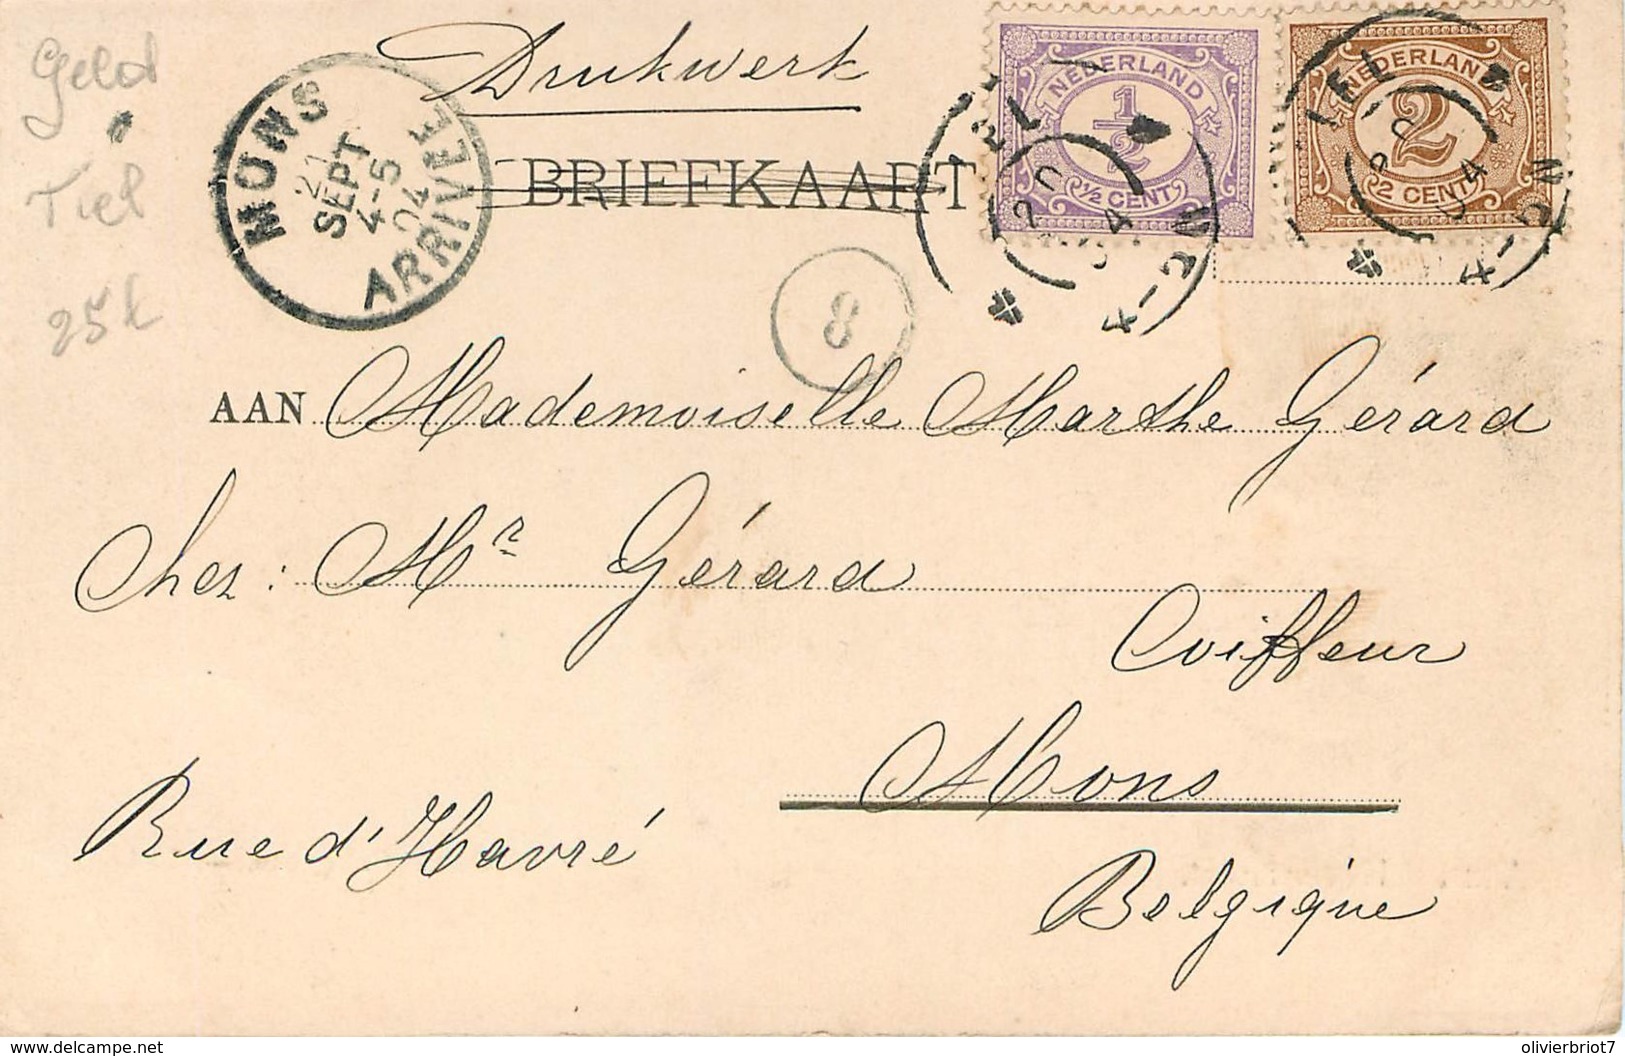 Geld
Tiel
25
Drukwerk
BRIEFKAART
MONS
21
SEPT
4-5
04
ARRIVEE
NEDERLAND
1/2
1/2 CENT
NEDERLAND
2
2 CENT
TIEL
20
4-5N
8
AAN Mademoiselle Marthe Gérard
Chez: Mr Gérard
Coiffeur
Mons
Rue d'Havré
Belgique
www.delcampe.net
olivierbriot7